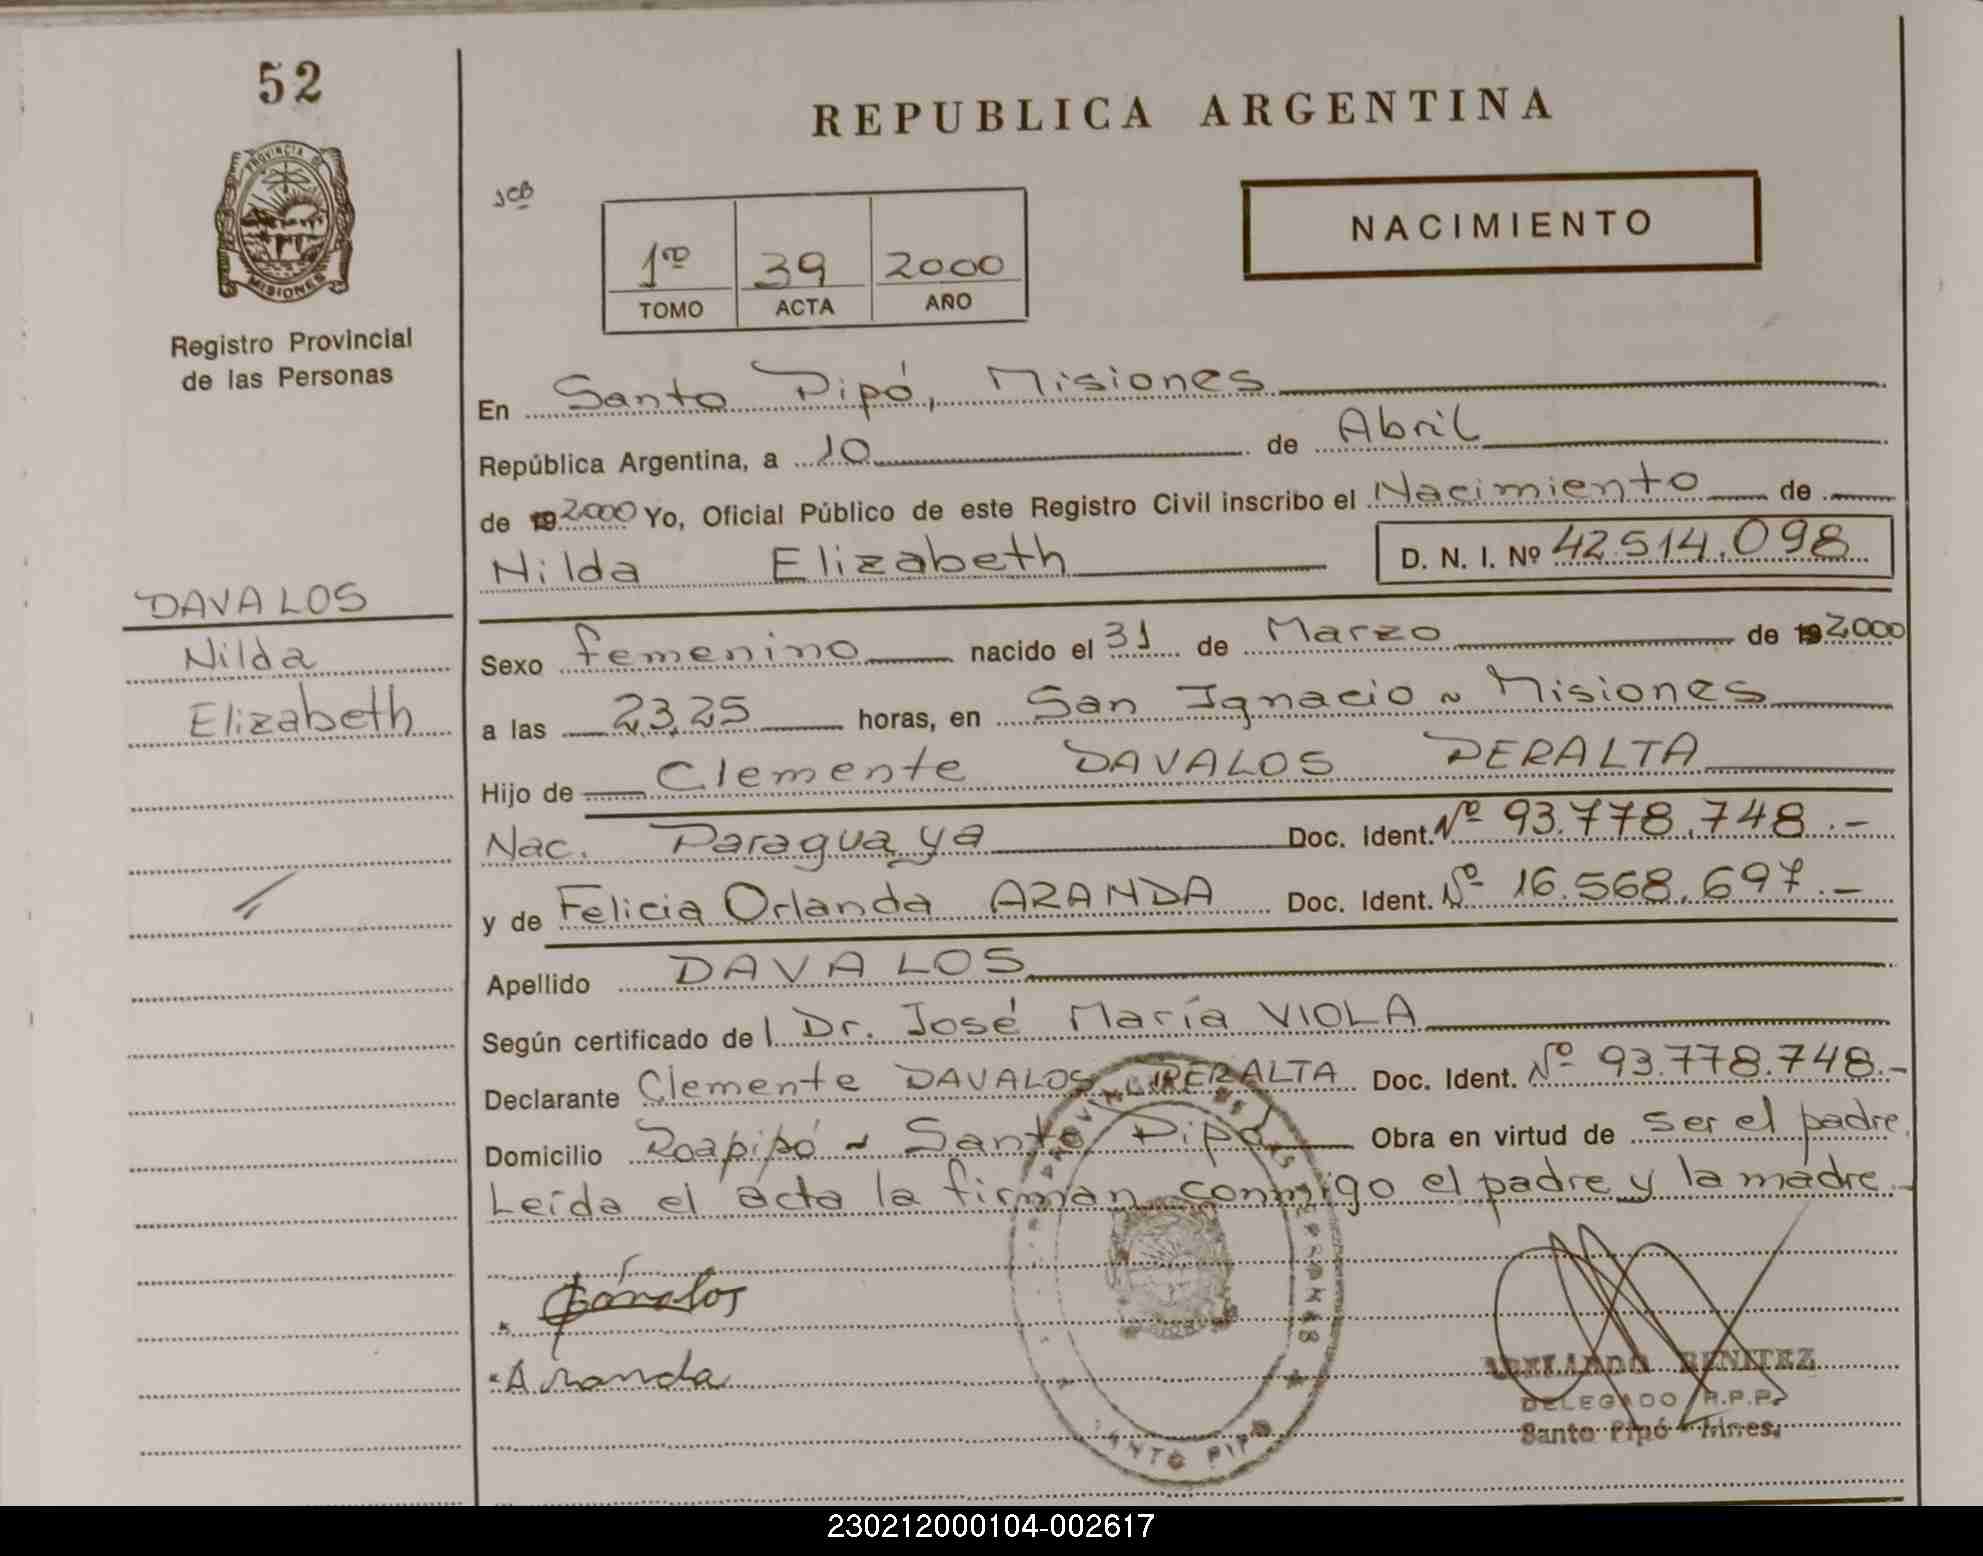 52
PROVINCIA DE
MISIONES
Registro Provincial
de las Personas
DAVALOS
Nilda
Elizabeth
REPUBLICA ARGENTINA
JCB
1ro 39 2000
TOMO ACTA AÑO
NACIMIENTO
En Santo Pipó, Misiones
República Argentina, a 10 de Abril
de 19 2000 Yo, Oficial Público de este Registro Civil inscribo el Nacimiento de
Nilda Elizabeth D. N. I. Nº 42.514.098
Sexo femenino nacido el 31 de Marzo de 19 2000
a las 23,25 horas, en San Ignacio ~ Misiones
Hijo de Clemente DAVALOS PERALTA
Nac. Paraguaya Doc. Ident. Nº 93.778.748.-
y de Felicia Orlanda ARANDA Doc. Ident. Nº 16.568.697.-
Apellido DAVALOS
Según certificado del Dr. José María VIOLA
Declarante Clemente DAVALOS PERALTA Doc. Ident. Nº 93.778.748.-
Domicilio Roapipó ~ Santo Pipó Obra en virtud de ser el padre.
Leída el acta la firman conmigo el padre y la madre.-
Dávalos
Aranda
SANTO PIPO
BENITEZ
DELEGADO R.P.P.
Santo Pipó - Mnes.
230212000104-002617